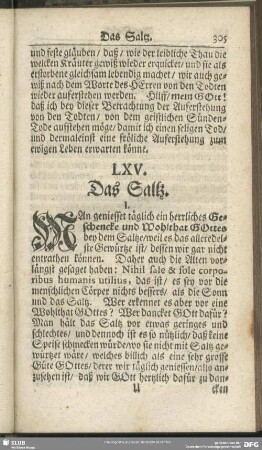 Das Saltz. 305
und feste gläuben / daß / wie der leidliche Thau die
welcken Kräuter gewiß wieder erquicket / und sie als
erstorbene gleichsam lebendig machet / wir auch ge-
wiß nach dem Worte des HErren von den Todten
wieder auferstehen werden. Hilff / mein GOtt!
daß ich bey dieser Betrachtung der Auferstehung
von den Todten / von dem geistlichen Sünden-
Tode aufstehen möge / damit ich einen seligen Tod /
und dermaleinst eine fröliche Auferstehung zum
ewigen Leben erwarten könne.
LXV.
Das Saltz.
I.
MAn geniesset täglich ein herrliches Ge-
schencke und Wohlthat GOttes
bey dem Saltze / weil es das alleredel-
ste Gewürtze ist / dessen wir gar nicht
entrathen können. Daher auch die Alten vor-
längst gesaget haben: Nihil sale & sole corpo-
ribus humanis utilius, das ist / es sey vor die
menschlichen Cörper nichts bessers / als die Sonn
und das Saltz. Wer erkennet es aber vor eine
Wohlthat GOttes? Wer dancket GOtt dafür?
Man hält das Saltz vor etwas geringes und
schlechtes / und dennoch ist es so nützlich / daß keine
Speise schmecken würde / wo sie nicht mit Saltz ge-
würtzet wäre / welches billich als eine sehr grosse
Güte GOttes / derer wir täglich geniessen / also an-
zusehen ist / daß wir GOtt hertzlich dafür zu dan-
U cken
SLUB
DFG